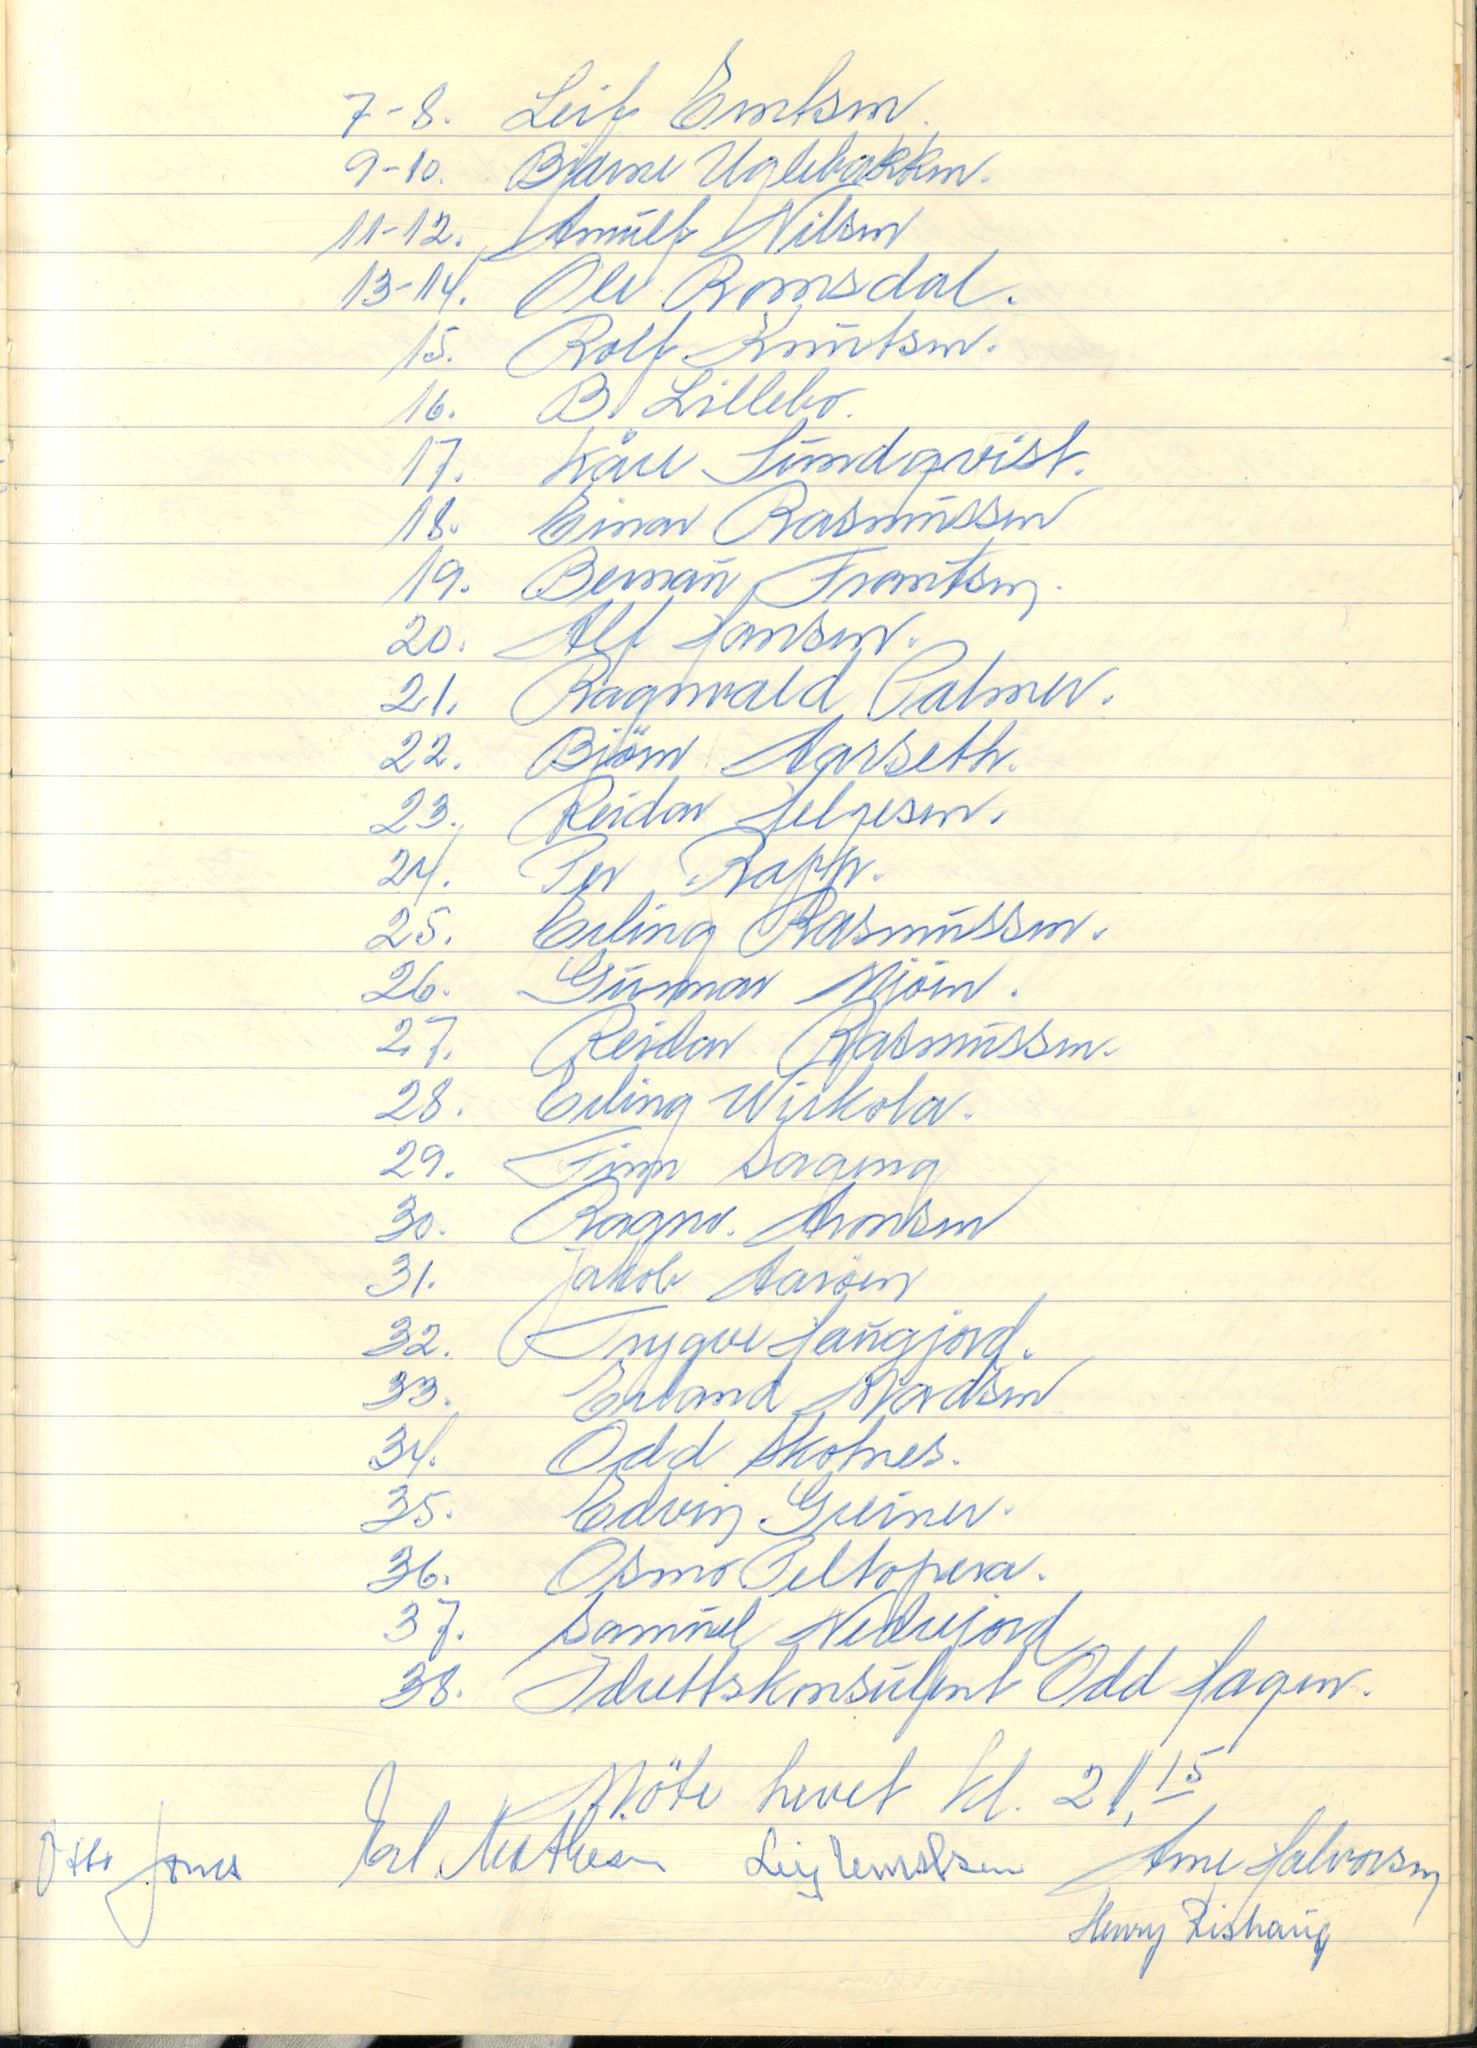 7-8. Leif Erntsen.
9-10. Bjarne Uglebakken.
11-12. Arnulf Nilsen
13-14. Ole Romsdal.
15. Rolf Knutsen.
16. B. Lillebo.
17. Kåre Sundqvist.
18. Einar Rasmussen
19. Bernau Frantsen.
20. Alf Hansen.
21. Ragnvald Palmer.
22. Björn Aarseth.
23. Reidar Helgesen.
24. Per Rapp.
25. Erling Rasmussen.
26. Gunnar Mjöen.
27. Reidar Rasmussen.
28. Erling Wirkola.
29. Finn Sageng
30. Ragnv. Aronsen
31. Jakob Aaröen
32. Trygve Haugjord.
33. Erland Madsen
34. Odd Skolnes.
35. Edvin Greiner.
36. Osmo Peltopera.
37. Samuel Nedrejord
38. Idrettskonsulent Odd Hagen.
Möte hevet kl. 21,15
Otto Jones Erl. Mathisen Leif Arne Halvorsen
Henry Rishaug